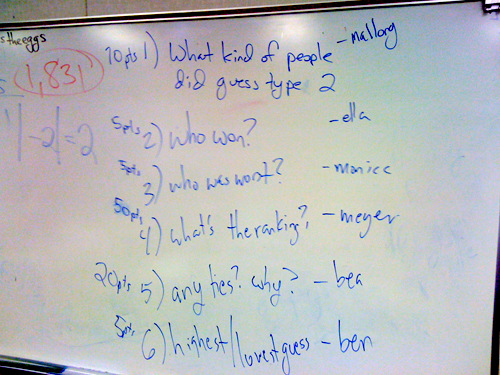 theeggs
1,831
|-2|=2
10pts 1) What kind of people - mallory
did guess type 2
5pts 2) who won? - ella
5pts 3) who was worst? - monica
50pts 4) what's the ranking? - meyer
20pts 5) any ties? why? - bea
5pts 6) highest/lowest guess - ben